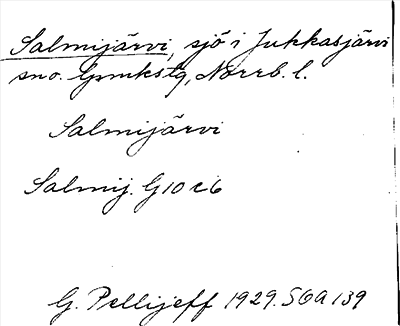 Salmijärvi, sjö i Jukkasjärvi
sno. Grmkstg, Norrb. l.
Salmijärvi
Salmij. G10 c6
G. Pellijeff 1929. SOA 139